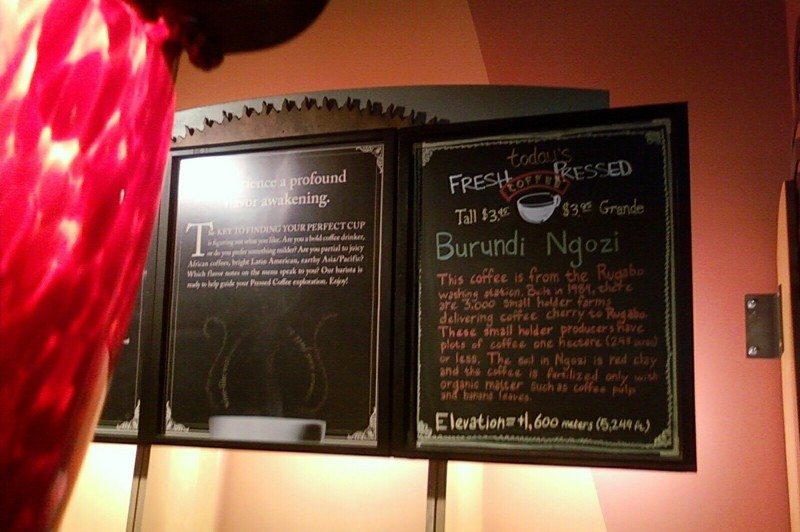 ience a profound
vor awakening.
The KEY TO FINDING YOUR PERFECT CUP
is figuring out what you like. Are you a bold coffee drinker,
or do you prefer something milder? Are you partial to juicy
African coffees, bright Latin American, earthy Asia/Pacific?
Which flavor notes on the menu speak to you? Our barista is
ready to help guide your Pressed Coffee exploration. Enjoy!
today's
FRESH PRESSED
COFFEE
Tall $3. $3. Grande
Burundi Ngozi
This coffee is from the Rugabo
washing station. Built in 1984, there
are 3,000 small holder farms
delivering coffee cherry to Rugabo.
These small holder producers have
plots of coffee one hectare (2.48 acres)
or less. The soil in Ngozi is red clay
and the coffee is fertilized only with
organic matter such as coffee pulp
and banana leaves.
Elevation=+1,600 meters (5,249 ft.)